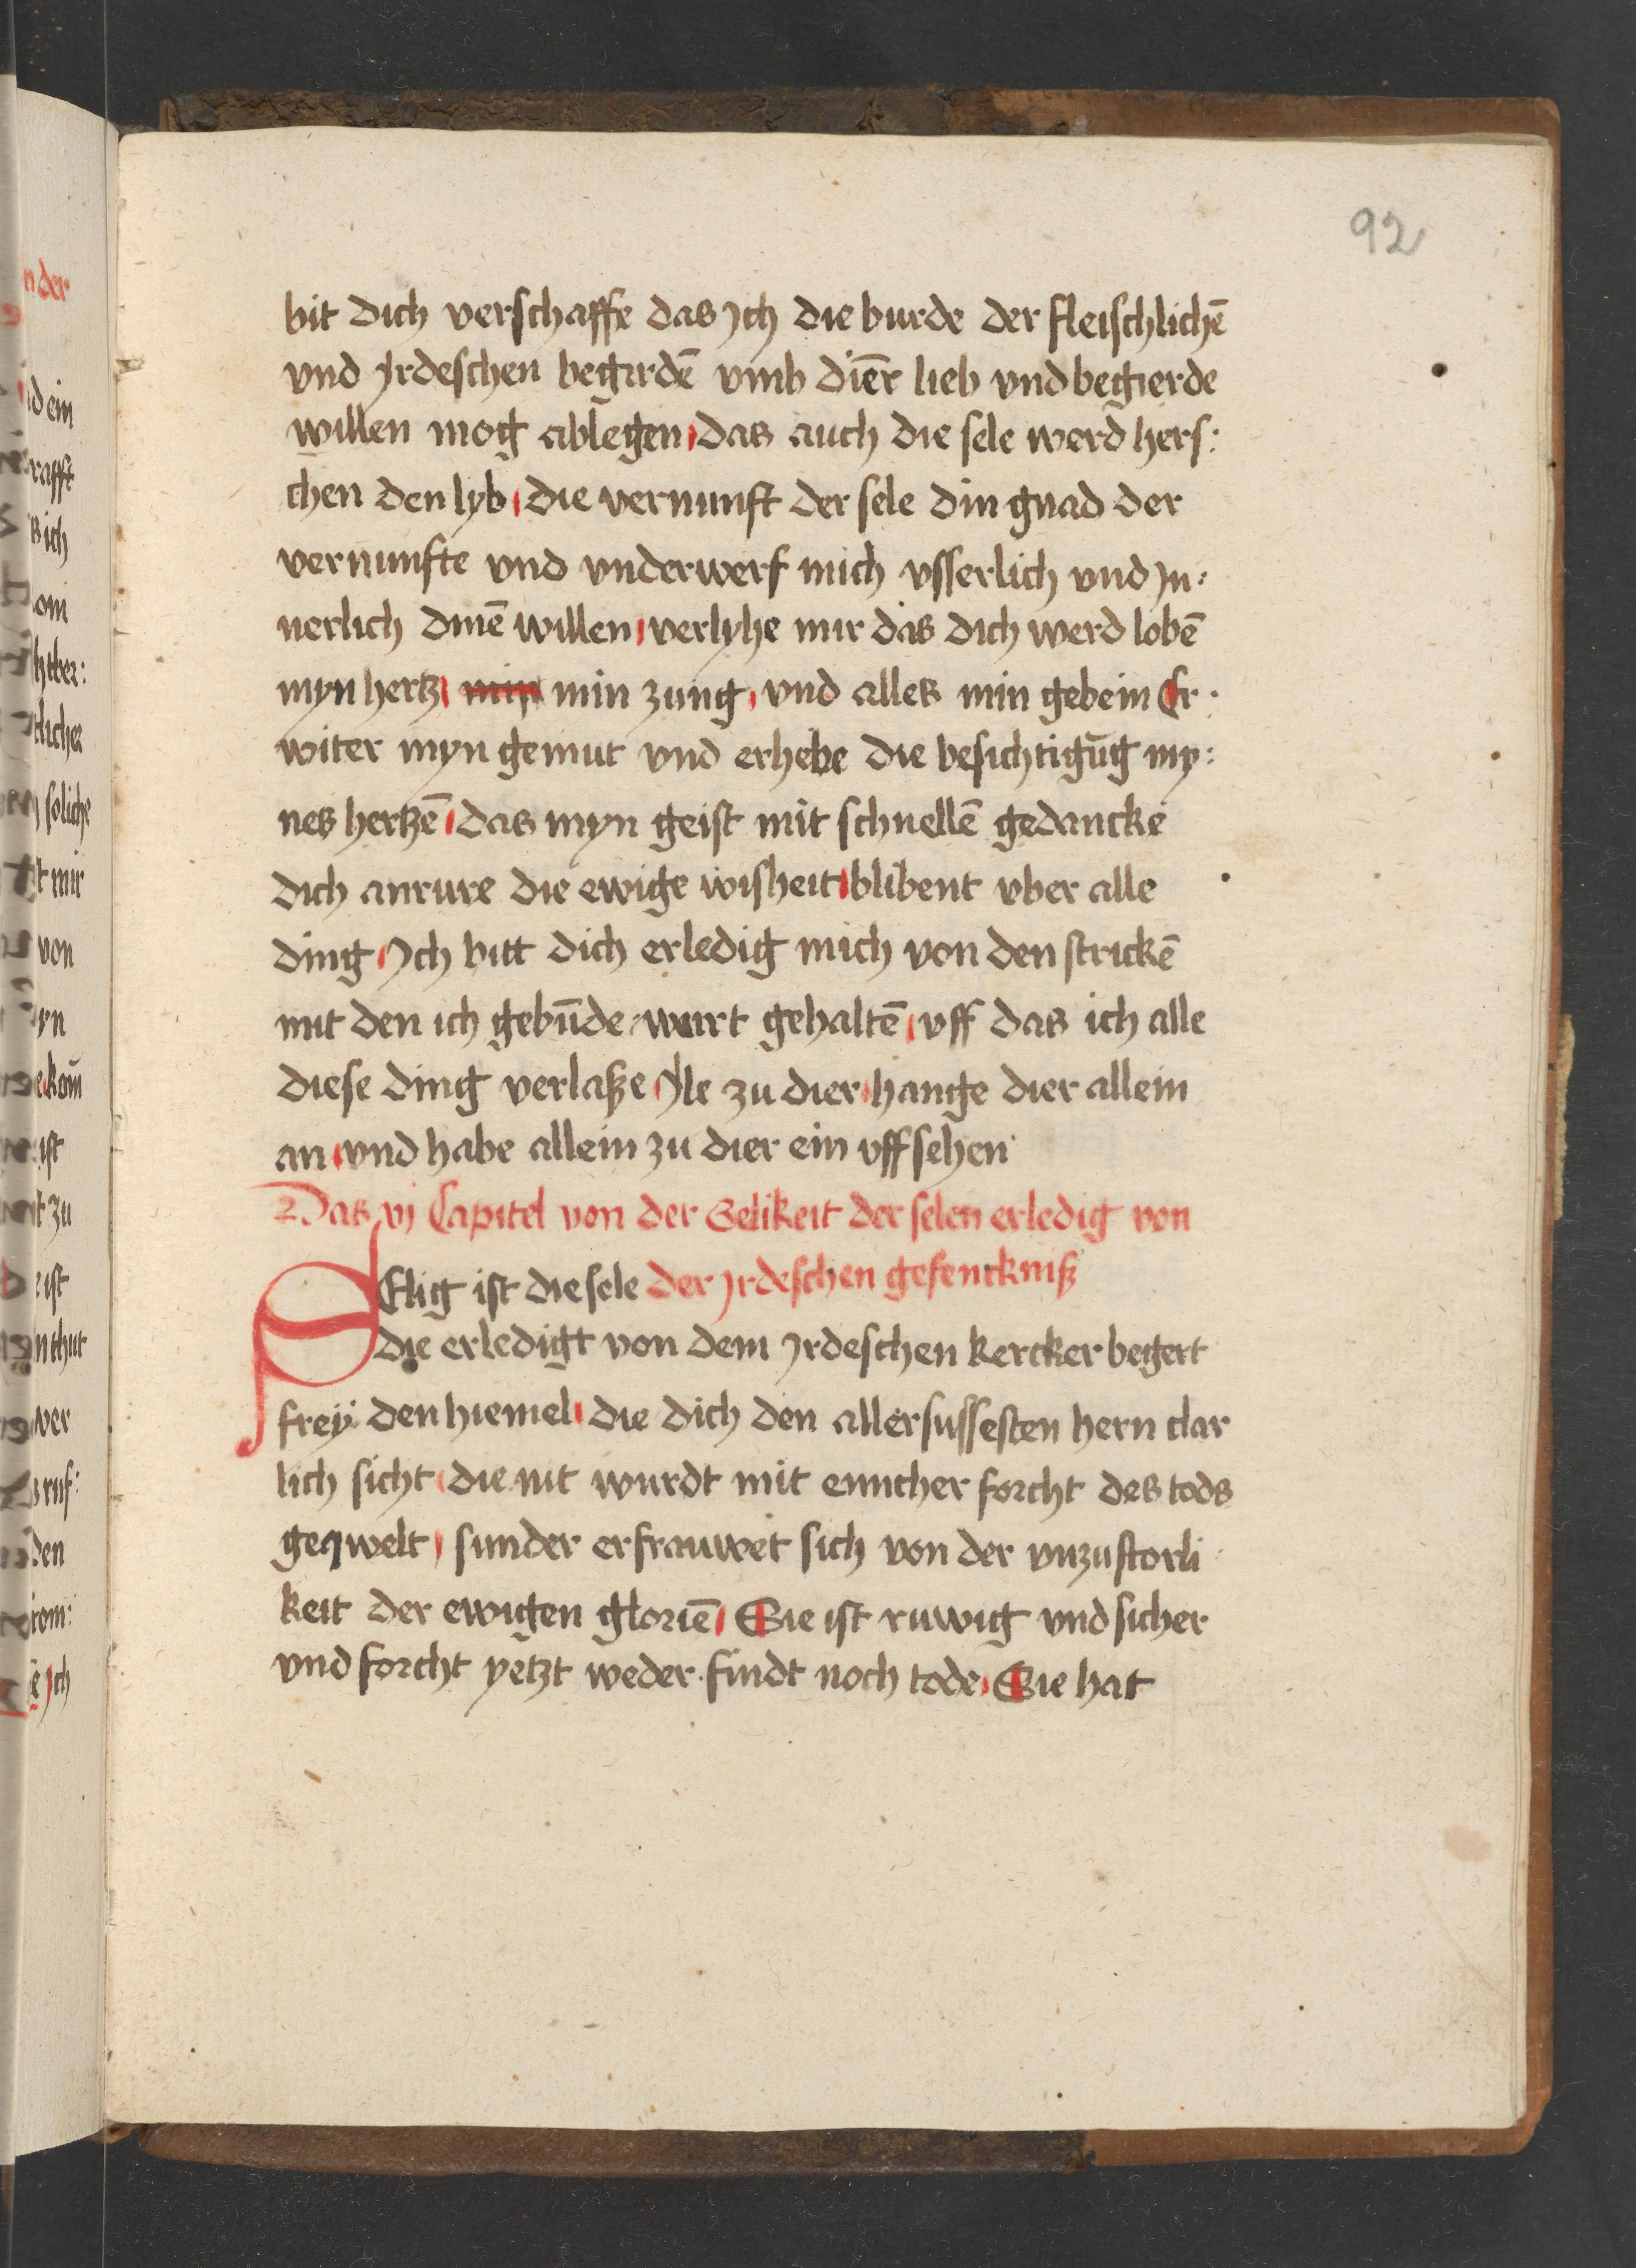 92
bit dich verschaffe das Ich die burde der fleischlichē
vnd yrdeschen begirdē vmb diēr lieb vnd begierde
willen mog ablegen das auch die sele werd hers:
chen den lyb die vernunft der sele din gnad der
vernunfte vnd vnderwerf mich vsserlich vnd In:
nerlich dinē willen verlyhe mir das dich werd lobē
myn hertz min min zung vnd alles min gebein Er
witer myn gemut vnd erhebe die besichtigūg my:
nes hertzē das myn geist mit schnellē gedancke
dich anrure die ewige wisheit blibent vber alle
ding Ich bitt dich erledig mich von den strickē
mit den ich gebūde wurt gehaltē vff das ich alle
diese ding verlaße Ile zu dier hange dier allein
an vnd habe allein zu dier ein vffsehen
Das vj Capitel von der Selikeit der selen erledig von
SElig ist die sele der Irdeschen gefenckniß
die erledigt von dem Irdeschen kercker begert
frey den hiemel die dich den allersussesten hern clar
lich sicht die nit wurdt mit enncher forcht des tods
geqwelt sunder erfrauwet sich von der vnzustorli
keit der ewigen gloriē Sie ist ruwig vnd sicher
vnd forcht yetzt weder findt noch tode Sie hat